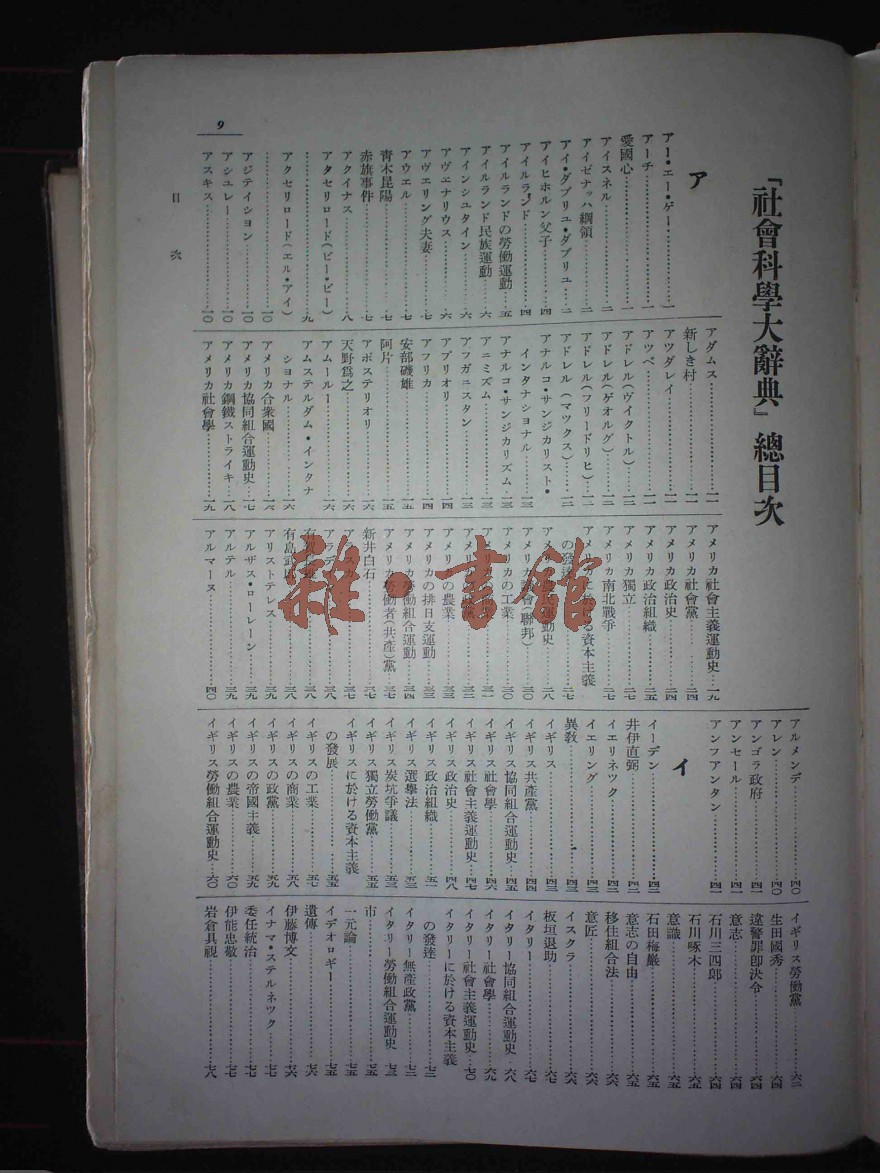 『社會科學大辭典』總目次
ア
アー・エー・ゲー……一
アーチ……一
愛國心……一
アイスネル……二
アイゼナッハ綱領……二
アイ・ダブリュ・ダブリユ……二
アイヒホルン父子……四
アイルランド……四
アイルランドの勞働運動……五
アイルランド民族運動……六
アインシュタイン……六
アヴェナリウス……六
アヴェリング夫妻……七
アウエル……七
青木昆陽……七
赤旗事件……七
アクイナス……八
アクセリロード(ピー・ビー)
……九
アクセリロード(エル・アイ)
……一〇
アジテイション……一〇
アシュレー……一〇
アスキス……一〇
アダムス……一一
新しき村……一一
アツダレイ……一一
アツベ……一一
アドレル(ヴイクトル)……一二
アドレル(ゲオルグ)……一二
アドレル(フリードリヒ)……一二
アドレル(マツクス)……一二
アナルコ・サンジカリスト・
インタナショナル……一三
アナルコ・サンジカリズム……一三
アニミズム……一三
アフガニスタン……一三
アプリオリ……一四
アフリカ……一四
安部磯雄……一五
阿片……一五
アポステリオリ……一六
天野爲之……一六
アムールー……一六
アムステルダム・インタナ
ショナル……一六
アメリカ合衆國……一六
アメリカ協同組合運動史……一七
アメリカ鋼鐵ストライキ……一八
アメリカ社會學……一九
アメリカ社會主義運動史……一九
アメリカ社會黨……二四
アメリカ政治史……二四
アメリカ政治組織……二五
アメリカ獨立……二七
アメリカ南北戰爭……二七
アメリカに於ける資本主義
の發達……二七
運動史……二八
(聯邦)……三〇
アメリカの工業……三〇
アメリカの農業……三二
アメリカの排日支運動……三三
アメリカ勞働組合運動……三四
アメリカ勞働者(共產)黨……三七
新井白石……三七
有島武郎……三八
アリストテレス……三九
アルザス・ローレーン……三九
アルテル……三九
アルマース……四〇
アルメンデ……四〇
アレン……四〇
アンゴラ政府……四一
アンセール……四一
アンフアンタン……四一
イ
イーデン……四二
井伊直弼……四二
イエリネツク……四二
イエリング……四三
異敎……四三
イギリス……四三
イギリス共產黨……四四
イギリス協同組合運動史……四五
イギリス社會學……四六
イギリス社會主義運動史……四七
イギリス政治史……四八
イギリス政治組織……五一
イギリス選擧法……五三
イギリス炭坑爭議……五三
イギリス獨立勞働黨……五五
イギリスに於ける資本主義
の發展……五五
イギリスの工業……五七
イギリスの商業……五八
イギリスの政黨……五九
イギリスの帝國主義……五九
イギリスの農業……六〇
イギリス勞働組合運動史……六〇
イギリス勞働黨……六三
生田國秀……六四
違警罪卽決令……六四
意志……六四
石川三四郎……六四
石川啄木……六五
意識……六五
石田梅巖……六五
意志の自由……六五
移住組合法……六六
意匠……六六
イスクラ……六六
板垣退助……六七
イタリー……六七
イタリー協同組合運動史……六八
イタリー社會學……六九
イタリー社會主義運動史……七〇
イタリーに於ける資本主義
の發達……七二
イタリー無產政黨……七二
イタリー勞働組合運動史……七三
市……七五
一元論……七五
イデオロギー……七五
遺傳……七六
伊藤博文……七六
イナマ・ステルネツク……七七
委任統治……七七
伊能忠敬……七七
岩倉具視……七八
目次
9
雜·書館